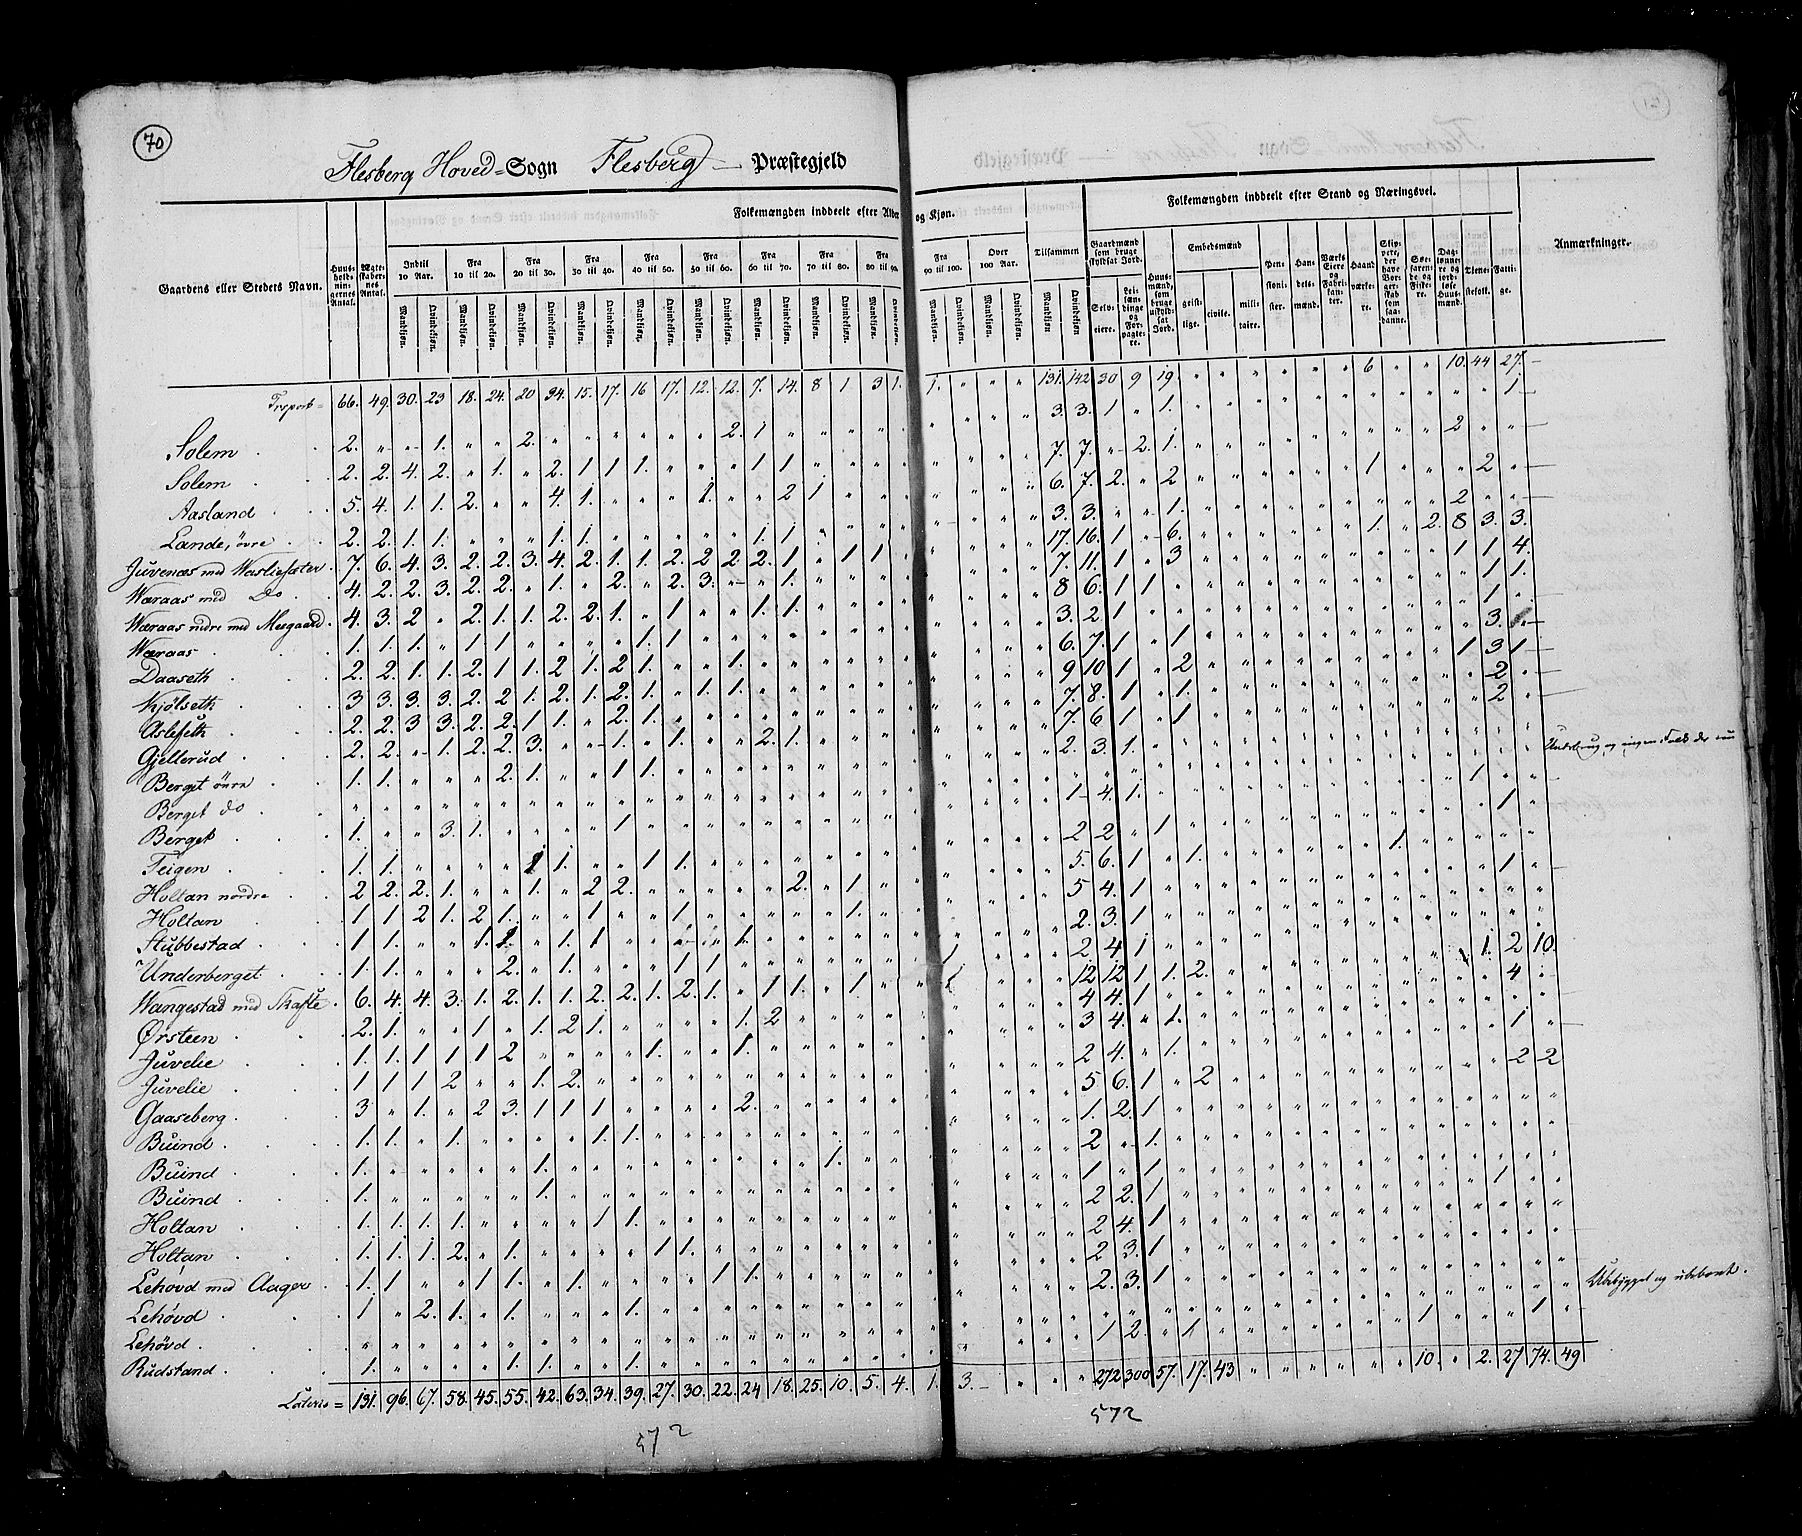 70
Flesberg Hoved-Sogn Flesberg Præstegjeld
Gaardens eller Stedets Navn.
Huusholdningernes Antal.
Ægteskabernes Antal.
Folkemængden inddeelt efter Alder og Kjøn.
Indtil 10 Aar.
Fra 10 til 20.
Fra 20 til 30.
Fra 30 til 40.
Fra 40 til 50.
Fra 50 til 60.
Fra 60 til 70.
Fra 70 til 80.
Fra 80 til 90.
Fra 90 til 100.
Over 100 Aar.
Tilsammen
Mandkjøn. Qvindekjøn.
Folkemængden inddeelt efter Stand og Næringsvei.
Gaardmænd som bruge skyldsat Jord.
Selveiere.
Leilændinge og Forpagtere.
Huusmænd, som bruge uskyldsat Jord.
Embedsmænd
geistlige. civile. militaire.
Pensionister.
Handelsmænd.
Værks Eiere og Fabrikanter.
Haandværkere.
Skippere, der have Borgerskab som saadanne.
Søefarende og Fiskere.
Daglønnere og jordløse Huusmænd.
Tjenestefolk.
Fattige.
Anmærkninger.
Trsport = 66. 49. 30. 23 18. 24. 20 34. 15. 17. 16 17. 12. 12. 7. 14. 8 1 3 1. 1. " " " 131. 142 30 9 19. " " " " " " 6 " " 10. 44 27.
Solem 2. " " 1. " " 2. " " " " " " 2. 1 " " " " 3. 3. 1 " 1. 1
Solem 2. 2. 4. 2. " 1. " 2. 1 1 1. " " " 1 1 " " " 7. 7. " 2. 1. 2
Aasland 5. 4. 1. 1. 2. " " 4. 1. " " " 1. " " 2 1 " " 6. 7. 2. " 2 1 2
Lande, øvre 2. 2. 1. 1. " " " 1. 1. " " " " " 1. 1 " " " 3. 3. " " 1. 2
Juvenæs med Wasliesæter 7. 6. 4. 3. 2. 2. 3. 4. 2. 1. 1. 2. 2 2. 2. 1. " 1 1 17. 16. 1 " 6. 1. " 2. 8 3. 3.
Wæraas med Do 4. 2. 2. 3. 2. 2. " 1. " 2. " 2. 3. " " 1. " " " 7. 11. 1 " 3 1 1 4.
Wæraas nedre med Moegaard 4. 3. 2 " 2. 1. 1. 2. 2. 1. " 1 " " 1. 1. " " " 8 6. 1 1 1 1.
Wæraas 1. 1. 1. " 1. 1 " " " " 1. 1 " " " " " " " 3. 2. 1 1.
Daaseth 2. 2. 1. 1. 2. 1 1. 2 1. 2. 1. " " 1. " " " " " 6. 7. 1 " 1 3.
Kjølseth 3 3. 3. 3. 2. 2 1. 2. 1. 2. 1. " 1. 1. " " " " " 9 10 1 " 2 1 3 1
Aslefeth 2. 2. 3 3. 2. 2. 1 1. " 2. 1. " " " " " " " " 7. 8. 1 " 1. 2
Gjellerud 2. 2. " 1. 2. 2. 3. " " 1. " 1. " " 2. 1. " " " 7. 6 1 " 1 2
Berget øvre 1. 1. " " " 2. 1. " " 1 1. " " " " " " " " 2. 3. 1.
Berget do " " " " " " " " " " " " " " " " " " "
Berget 1. " " 3. 1. " " " " 1 " " " " " " " " " 1 4. 1. 1
Teigen 1. 1. " " " " 1 1. " " 1 1. " " " " " " " 2 2 " 1 1
Holtan nordre 2 2. 2. 1. " " 1. " 2 2. " " " " " 2. " 1. " 5. 6. 1 " 1. 1.
Holtan 1 1 2 1. 2 1. " " 1 " " 1. " " " " " 1. " 5 4. 1 1
Stubbestad 1 1. " " 1. 1. " 1. 1 " " " " 1. 2. 3. 1
Underberget 1. 1. " " " 2. " 1. " " " 1 1 " " " " " " 2 4 1
Wangestad med Skafte 6. 4. 4. 3. 1. 2. 1. 1. 2. 2. 1. 2. 1. " 1 1. " 1 " 12 12 1 1. 2. 1. 2 10.
Ørsteen 2. 1. " " 1 " 1. 2 1. " " " " 1. 2 4 4. 1 4
Juvelie 1. 1. 1 1 1 2 " " " " 1. " " 1. 3 4. " 1.
Juvelie 1 1 1 2 " " 1. 2. " 2 4. " 1. 1
Gaaseberg 3 " 1. " 2 3. 1 1 1 " " " " 2. 5 6. 1 " 2 2 2
Buind 1. 1. " 1. " " " " 1. 1. 1. 2. 1
Buind 1. " " " " " 1. " " " " " " " " " 1. 2 " 1.
Buind 1. " " " " " 1. 1 " 1
Holtan 1. 1. 1. 1. " " " " 1 1. 2 2. 1 1
Holtan 1. 1. 1. 2. " 1. " " " " 1 1. 2 4. 1
Lehovd med Aager 1. 1 " " 1 1. " 1. " " " " 1 1. 2 3. 1
Lehövd 1 " 2. 1. " 1. " " " 1. 2. 3. 1
Lehövd " " " " " " " " " " " Ubebygget og ubeboet.
Rudstand 1. " " " " 1. 1. " " 1. 1 2. " 1 1 1
Lateris = 131. 96. 67. 58. 45. 55. 42. 63. 34. 39. 27. 30. 22. 24 18. 25. 10. 5. 4. 1. 3. " " " 272 300 57. 17. 43 " " " " " " 10. " 2. 27 74. 49
572
572